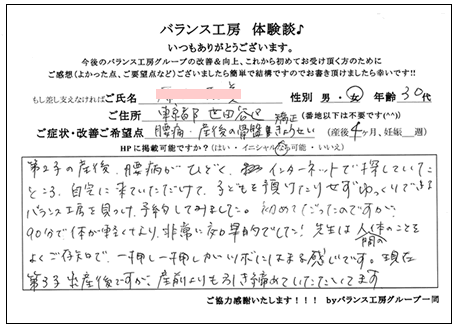 バランス工房 体験談♪
いつもありがとうございます。
今後のバランス工房グループの改善&向上、これから初めてお受け頂く方のために
ご感想(よかった点、ご要望点など)ございましたら簡単で結構ですのでお書き頂けましたら幸いです!!
もし差し支えなければご氏名 性別 男・女 年齢 30代
ご住所 東京都 世田谷区 (番地以下は不要です(^^))
ご症状・改善ご希望点 腰痛・産後の骨盤 矯正 (産後4ヶ月、妊娠 週)
HPに掲載可能ですか?(はい・イニシャルなら可能・いいえ)
第2子の産後、腰痛がひどく、インターネットで探していた
ところ、自宅に来ていただけて、子どもを預けたりせずゆっくりできる
バランス工房を見つけ、予約してみました。初めてだったのですが、
90分で体が軽くなり、非常に効果的でした!先生は人体のことを
よくご存知で、一押し一押しがいいツボにはまる感じです。現在
第3子出産後ですが、産前よりも引き締めていただいてます
ご協力感謝いたします!!! byバランス工房グループ一同